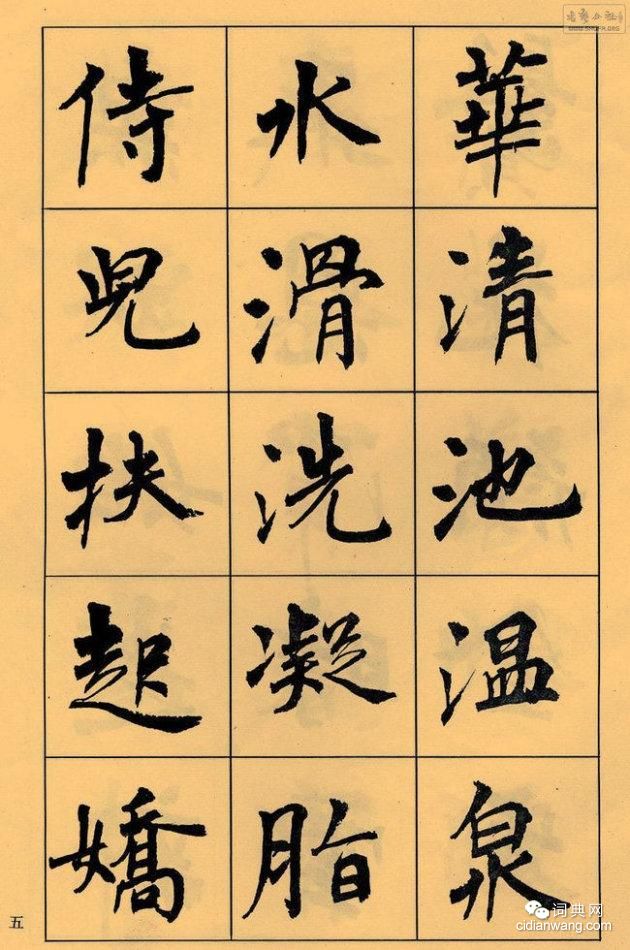 華清池温泉
水滑洗凝脂
侍兒扶起嬌
五
词典网
cidianwang.com
WWW.SHUFA.ORG